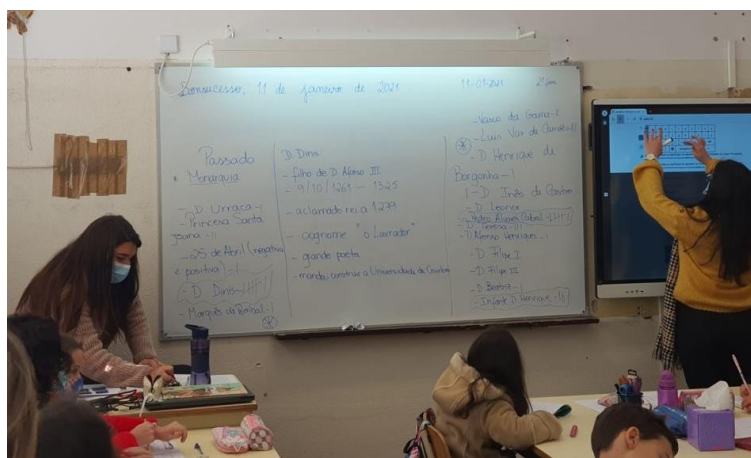 Bonsucesso, 11 de janeiro de 2021
11-01-2021
Passado
Monarquia
- D Urraca - I
- Princesa Santa
Joana - II
- 25 de Abril (negativa
e positiva) - I
- D Dinis -
- Marquês do Pombal - I
D. Dinis
- filho de D. Afonso III
- 9/10/1261 — 1325
- aclamado rei a 1279
- cognome "o Lavrador"
- grande poeta
- mandou construir a Universidade de Coimbra
- Vasco da Gama - I
- Luís Vaz de Camões - II
- D. Henrique de
Borgonha - I
- D. Inês de Castro
- D. Leonor
- Pedro Álvares Cabral -
- D. Teresa - III
- D Afonso Henriques - I
- D. Filipe I
- D. Filipe III
- D. Beatriz - I
- Infante D. Henrique -